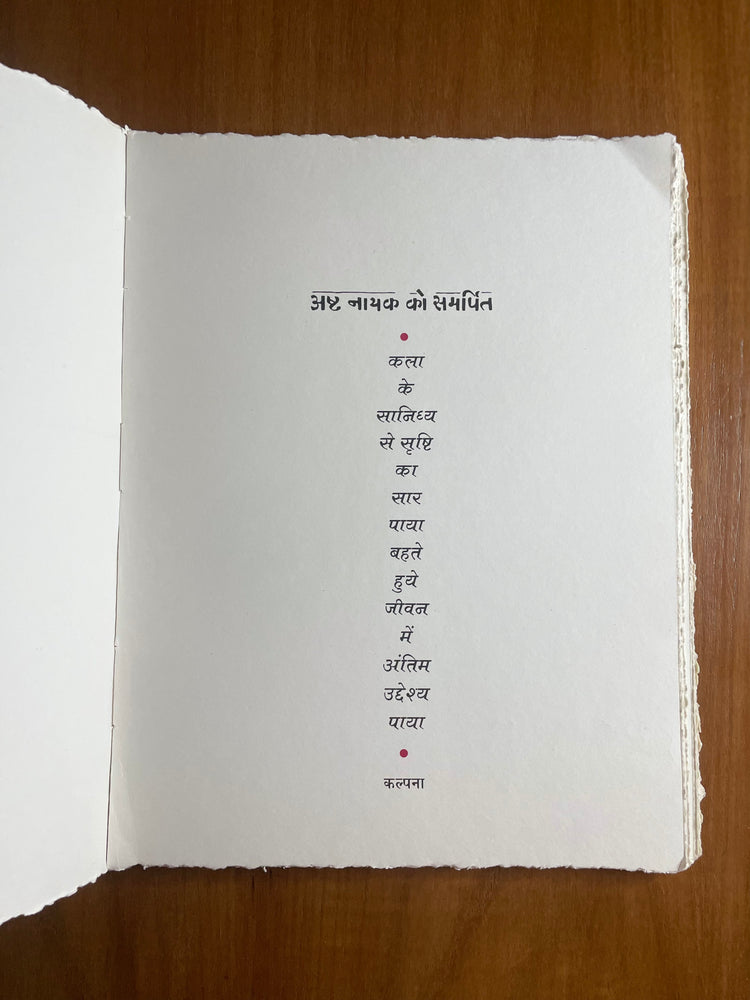 अष्ट नायक को समर्पित
कला
के
सानिध्य
से सृष्टि
का
सार
पाया
बहते
हुये
जीवन
में
अंतिम
उद्देश्य
पाया
कल्पना